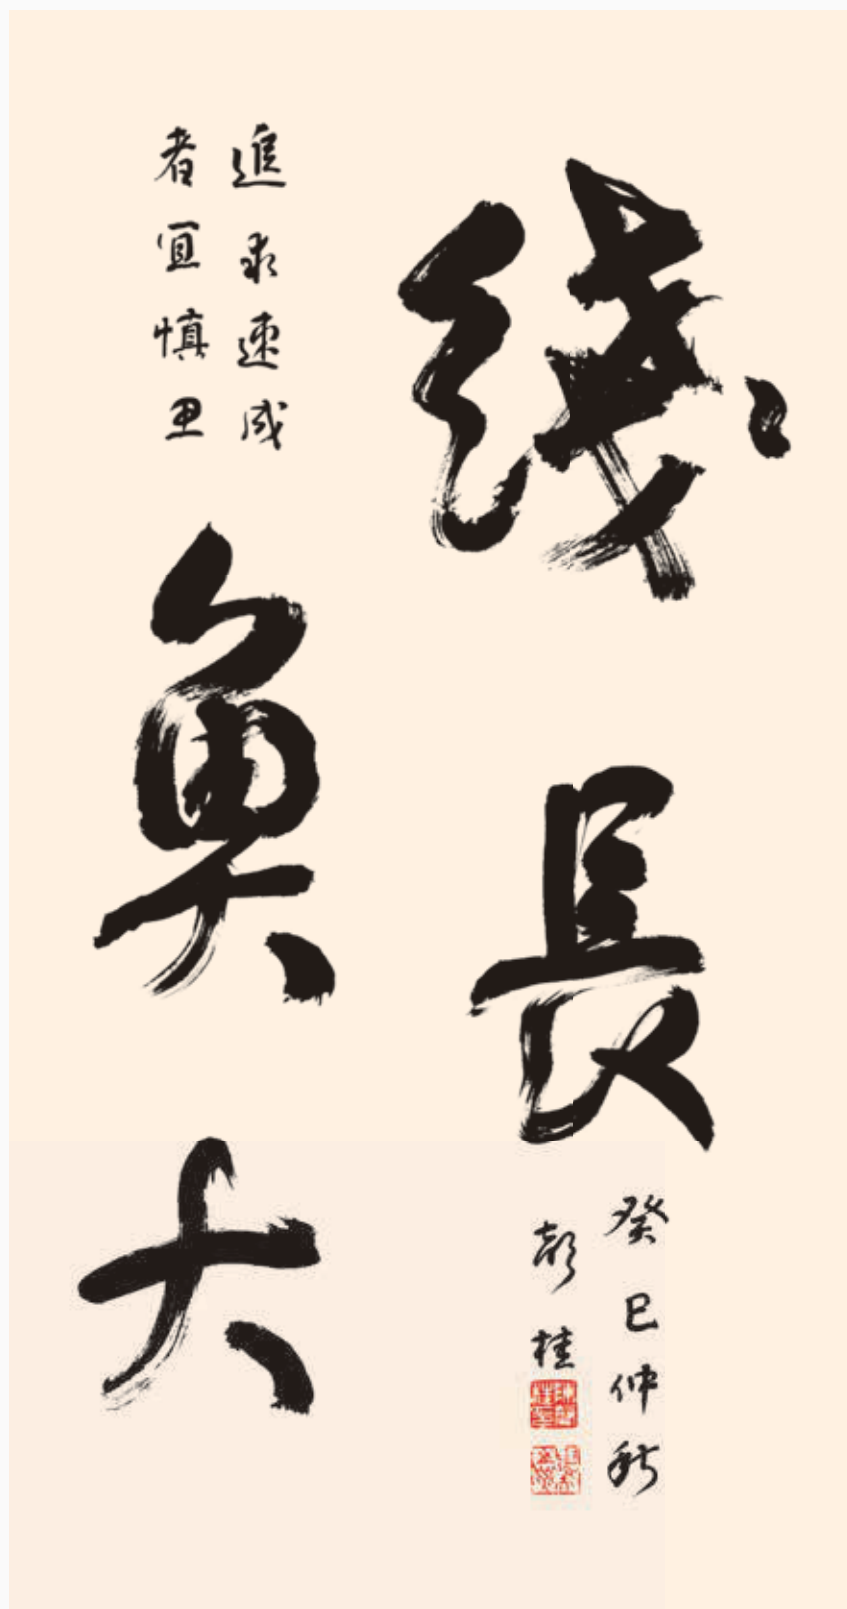 綫長
魚大
追求速成
者宜慎思
癸巳仲秋
彭桂